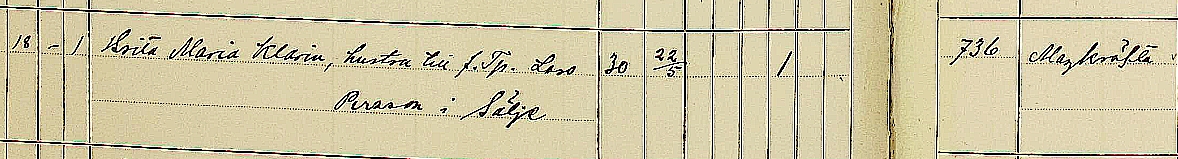 18 - 1 Brita Maria Klarin, hustru till f. Tp. Lars 30 22/5 1 736 Magkräfta
Persson i Sälje